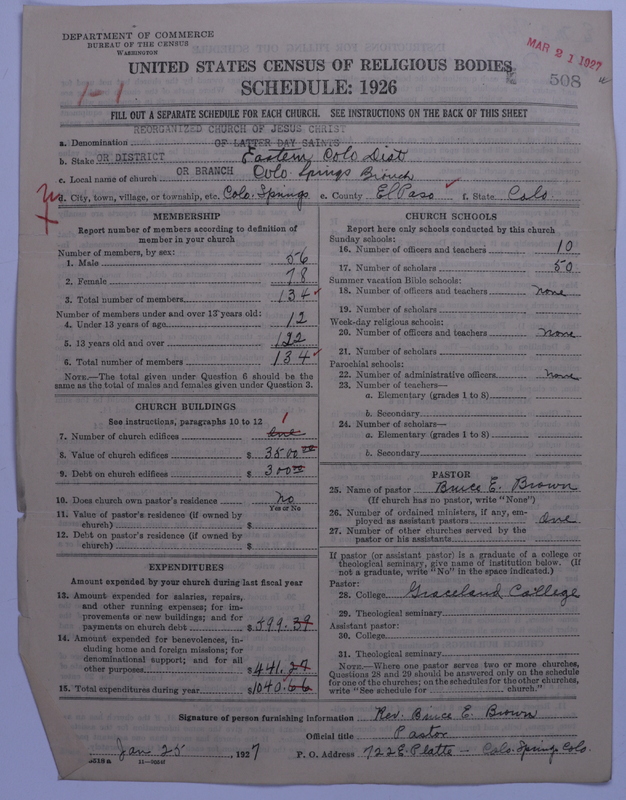 DEPARTMENT OF COMMERCE
BUREAU OF THE CENSUS
WASHINGTON
MAR 21 1927
508
UNITED STATES CENSUS OF RELIGIOUS BODIES
1-1
SCHEDULE: 1926
FILL OUT A SEPARATE SCHEDULE FOR EACH CHURCH. SEE INSTRUCTIONS ON THE BACK OF THIS SHEET
REORGANIZED CHURCH OF JESUS CHRIST
a. Denomination OF LATTER DAY SAINTS
b. Stake OR DISTRICT Eastern Colo Dist
c. Local name of church OR BRANCH Colo. Springs Branch
d. City, town, village, or township, etc. Colo. Springs e. County El Paso f. State Colo.
MEMBERSHIP
Report number of members according to definition of member in your church
Number of members, by sex:
1. Male 56
2. Female 78
3. Total number of members 134
Number of members under and over 13 years old:
4. Under 13 years of age 12
5. 13 years old and over 122
6. Total number of members 134
NOTE.—The total given under Question 6 should be the same as the total of males and females given under Question 3.
CHURCH BUILDINGS
See instructions, paragraphs 10 to 12
7. Number of church edifices one 1
8. Value of church edifices $ 3500.00
9. Debt on church edifices $ 300.00
10. Does church own pastor's residence No
Yes or No
11. Value of pastor's residence (if owned by church) $
12. Debt on pastor's residence (if owned by church) $
EXPENDITURES
Amount expended by your church during last fiscal year
13. Amount expended for salaries, repairs, and other running expenses; for improvements or new buildings; and for payments on church debt $ 599.39
14. Amount expended for benevolences, including home and foreign missions; for denominational support; and for all other purposes $ 441.27
15. Total expenditures during year $ 1040.66
CHURCH SCHOOLS
Report here only schools conducted by this church
Sunday schools:
16. Number of officers and teachers 10
17. Number of scholars 50
Summer vacation Bible schools:
18. Number of officers and teachers none
19. Number of scholars
Week-day religious schools:
20. Number of officers and teachers none
21. Number of scholars
Parochial schools:
22. Number of administrative officers none
23. Number of teachers—
a. Elementary (grades 1 to 8)
b. Secondary
24. Number of scholars—
a. Elementary (grades 1 to 8)
b. Secondary
PASTOR
25. Name of pastor Bruce E. Brown
(If church has no pastor, write "None")
26. Number of ordained ministers, if any, employed as assistant pastors One
27. Number of other churches served by the pastor or his assistants
If pastor (or assistant pastor) is a graduate of a college or theological seminary, give name of institution below. (If not a graduate, write "No" in the space indicated.)
Pastor:
28. College Graceland College
29. Theological seminary
Assistant pastor:
30. College
31. Theological seminary
NOTE.—Where one pastor serves two or more churches, Questions 28 and 29 should be answered only on the schedule for one of the churches; on the schedules for the other churches, write "See schedule for church."
Signature of person furnishing information Rev. Bruce E. Brown
Official title Pastor
Jan 25, 1927 P. O. Address 722 E. Platte – Colo. Springs Colo.